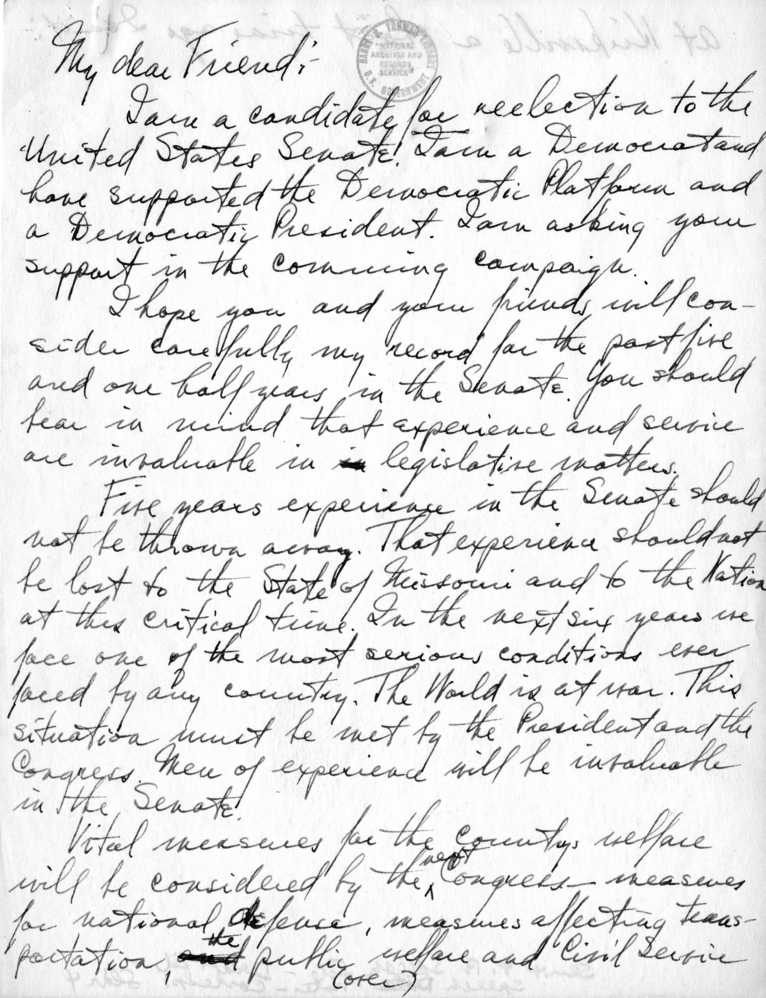 My dear Friend:-
HARRY S. TRUMAN LIBRARY
"NATIONAL
ARCHIVES AND
RECORDS
SERVICE"
U.S. GOVERNMENT
I am a candidate for reelection to the
United States Senate. I am a Democrat and
have supported the Democratic Platform and
a Democratic President. I am asking your
support in the comming campaign.
I hope you and your friends will con-
sider carefully my record for the past five
and one half years in the Senate. You should
bear in mind that experience and service
are invaluable in in legislative matters.
Five years experience in the Senate should
not be thrown away. That experience should not
be lost to the State of Missouri and to the Nation
at this critical time. In the next six years we
face one of the most serious conditions ever
faced by any country. The World is at war. This
situation must be met by the President and the
Congress. Men of experience will be invaluable
in the Senate.
Vital measures for the countrys welfare
will be considered by the next Congress - measures
for national defense, measures affecting trans-
portation, and the public welfare and Civil Service
(over)